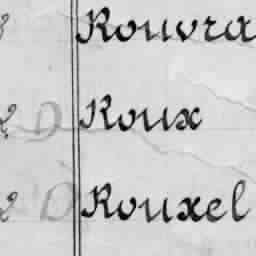 Rouvra
2 D Roux
2 D Rouxel